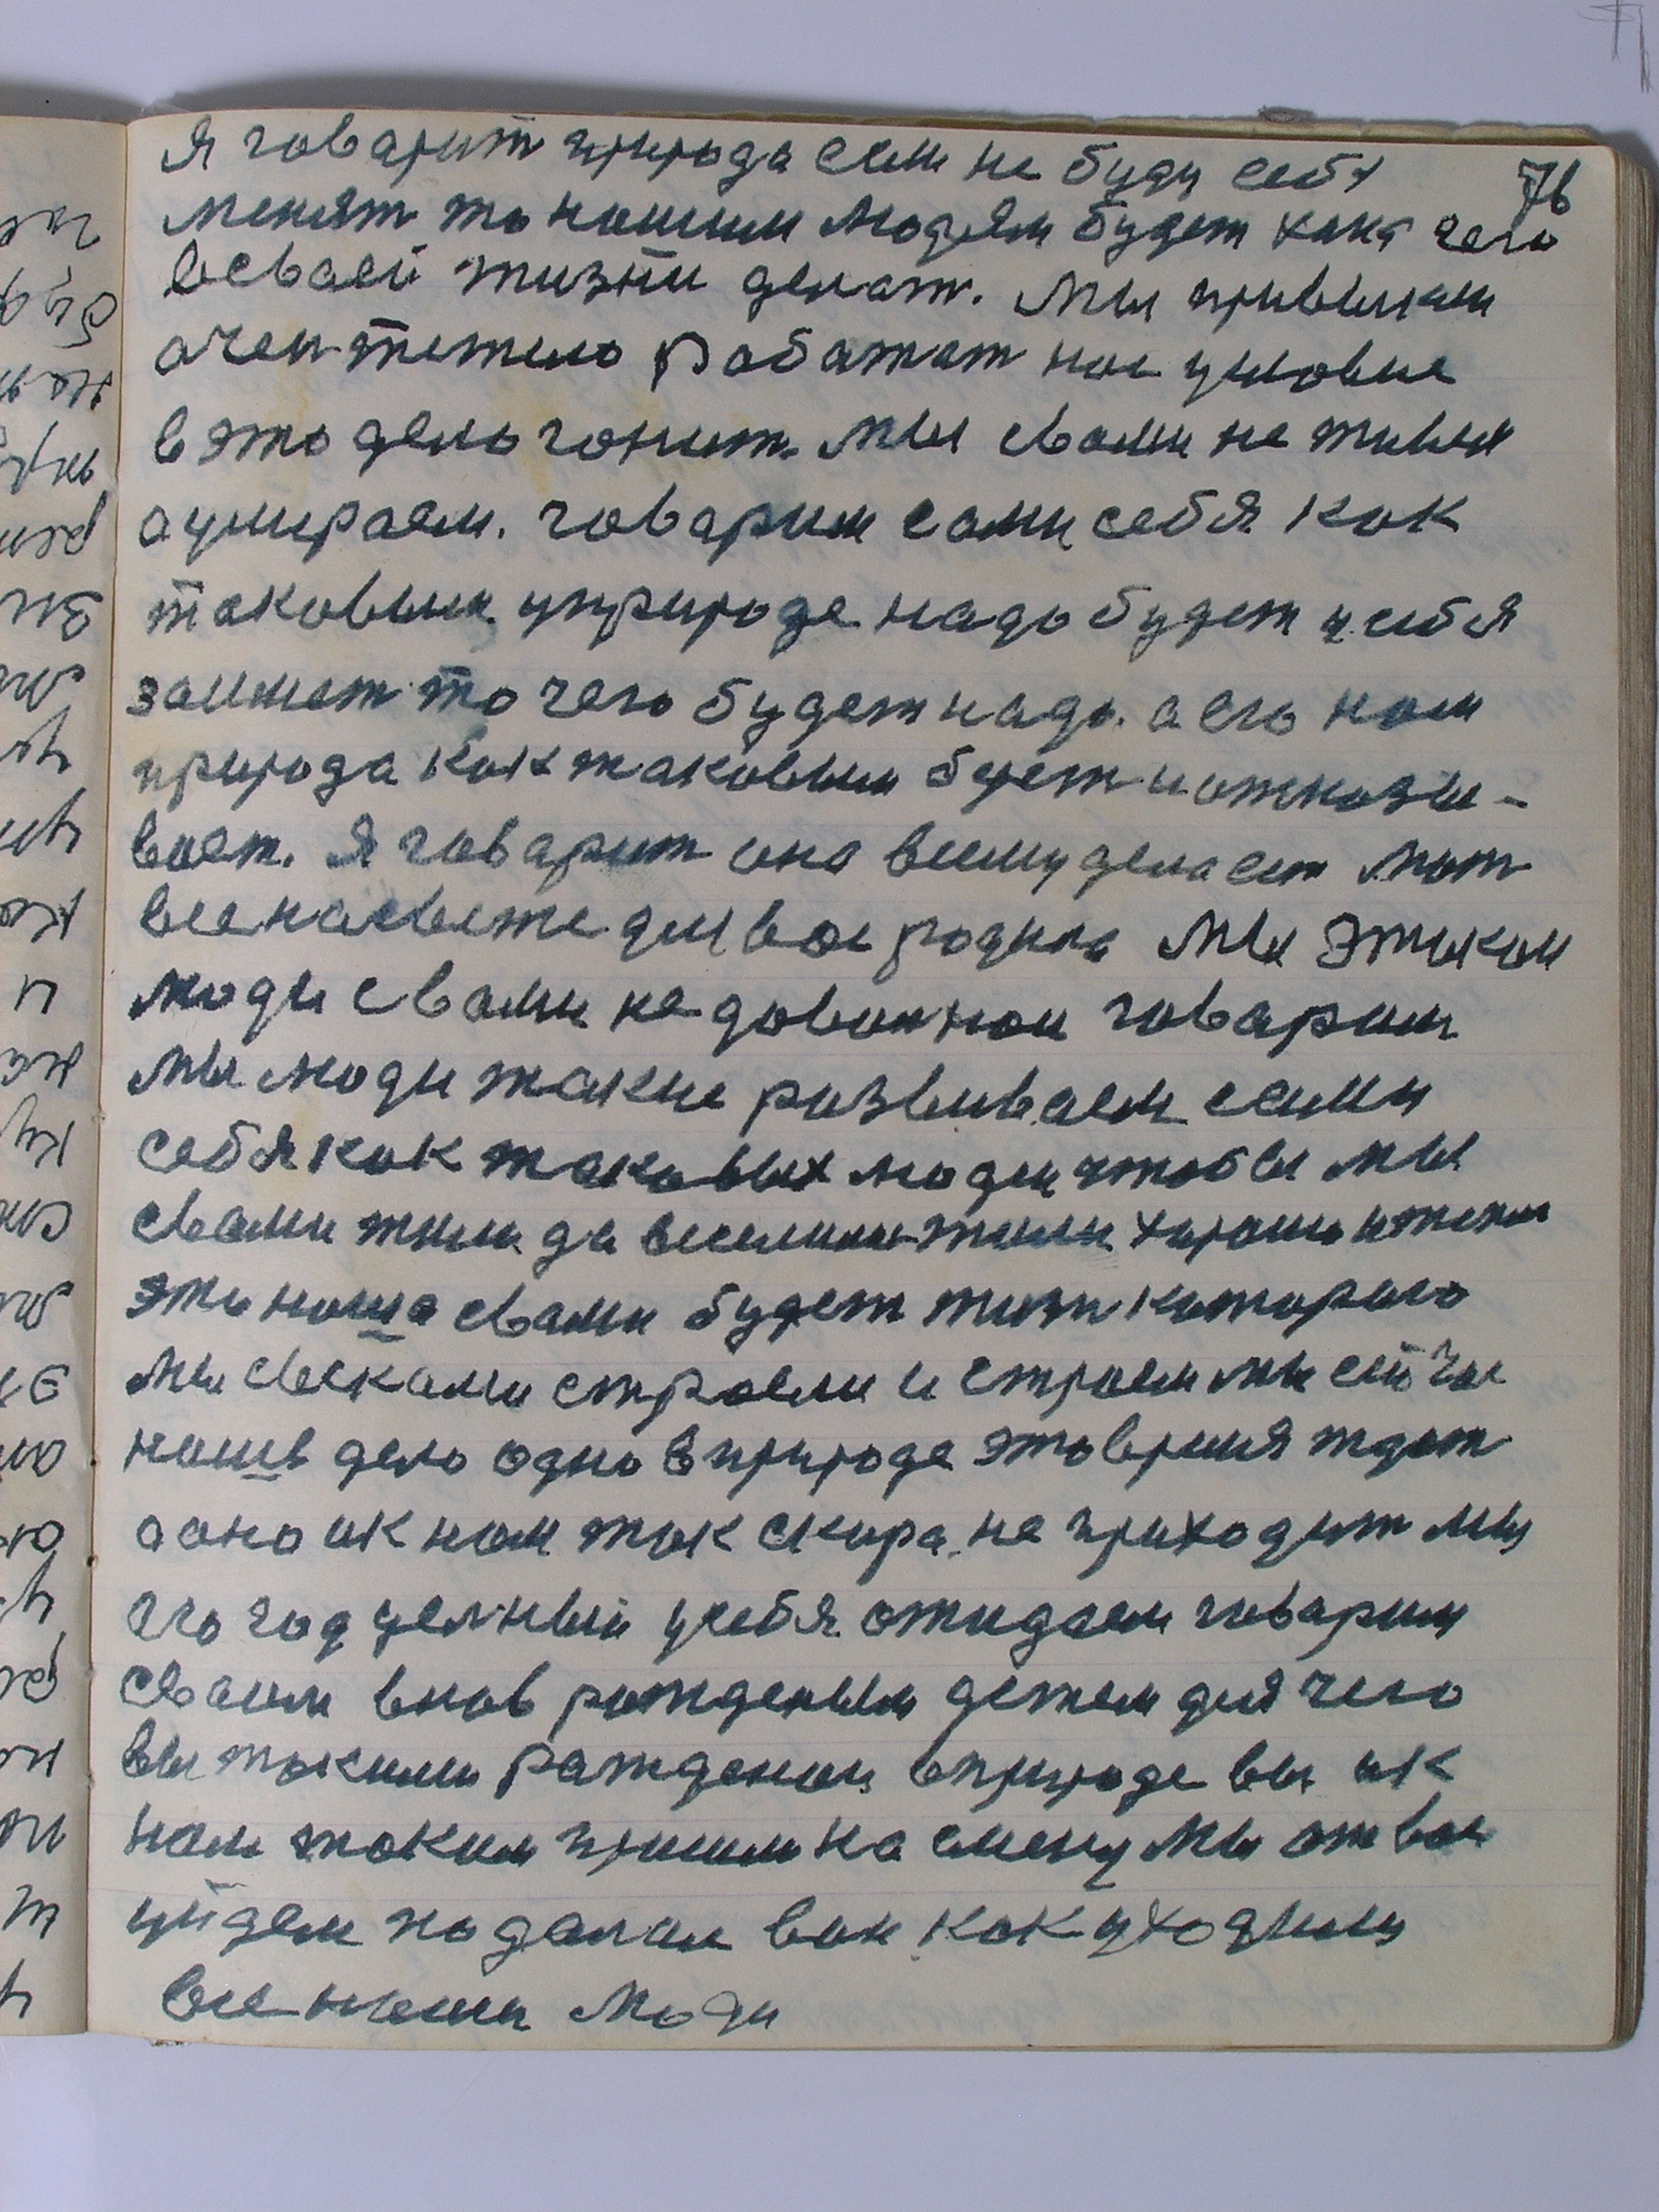 76
Я говарит природа если не буду себя
менят то нашим людям будет как чего
всваей жизни делат. Мы привыкли
очен тежело работат нас условие
вэто дело гонит. Мы свами не живем
а умираем. говарим сами себя как
таковыи уприроде надо будет у себя
заимет то чего будет надо. а его нам
природа как таковым будет и отказы-
вает. Я говарит она всему делаест мат
все насвете для вас родила Мы этихам
люди свами не довольнаи говарим
мы люди такие развиваем сами
себя как таковых люди чтобы мы
свами жили да веселилис жили харошо и тепло
это наша свами будет жизн которого
мы свеками строели и строем мы сичас
нашЪ дело одно вприроде это время ждат
а оно ик нам так скора не приходит мы
его год целный усебя ожидаем говарим
сваем внов рожденым детем для чего
вы такими ражденаи вприроде вы ик
нам таким пришли на смену мы от вас
уйдем подалше вон как уходили
все наши люди